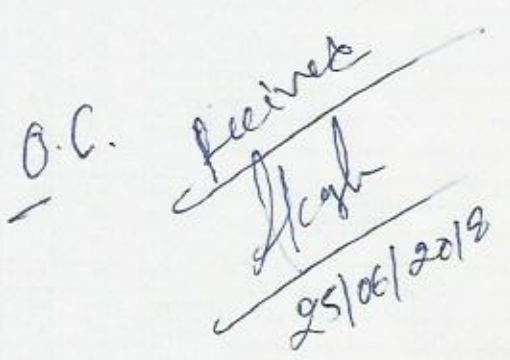 O.C. Received
25/06/2018